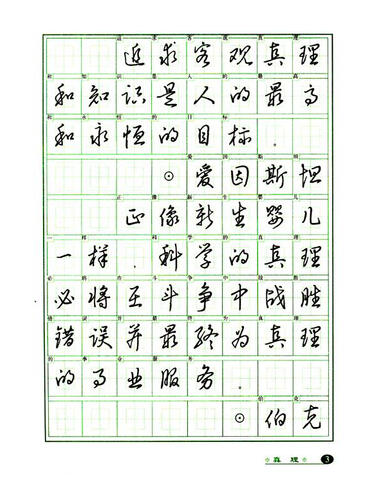 追求客观真理
和知识是人的最高
和永恒的目标
⊙爱因斯坦
正像新生婴儿
一样，科学的真理
必将在斗争中战胜
错误并最终为真理
的事业服务。
⊙伯克
真理 3